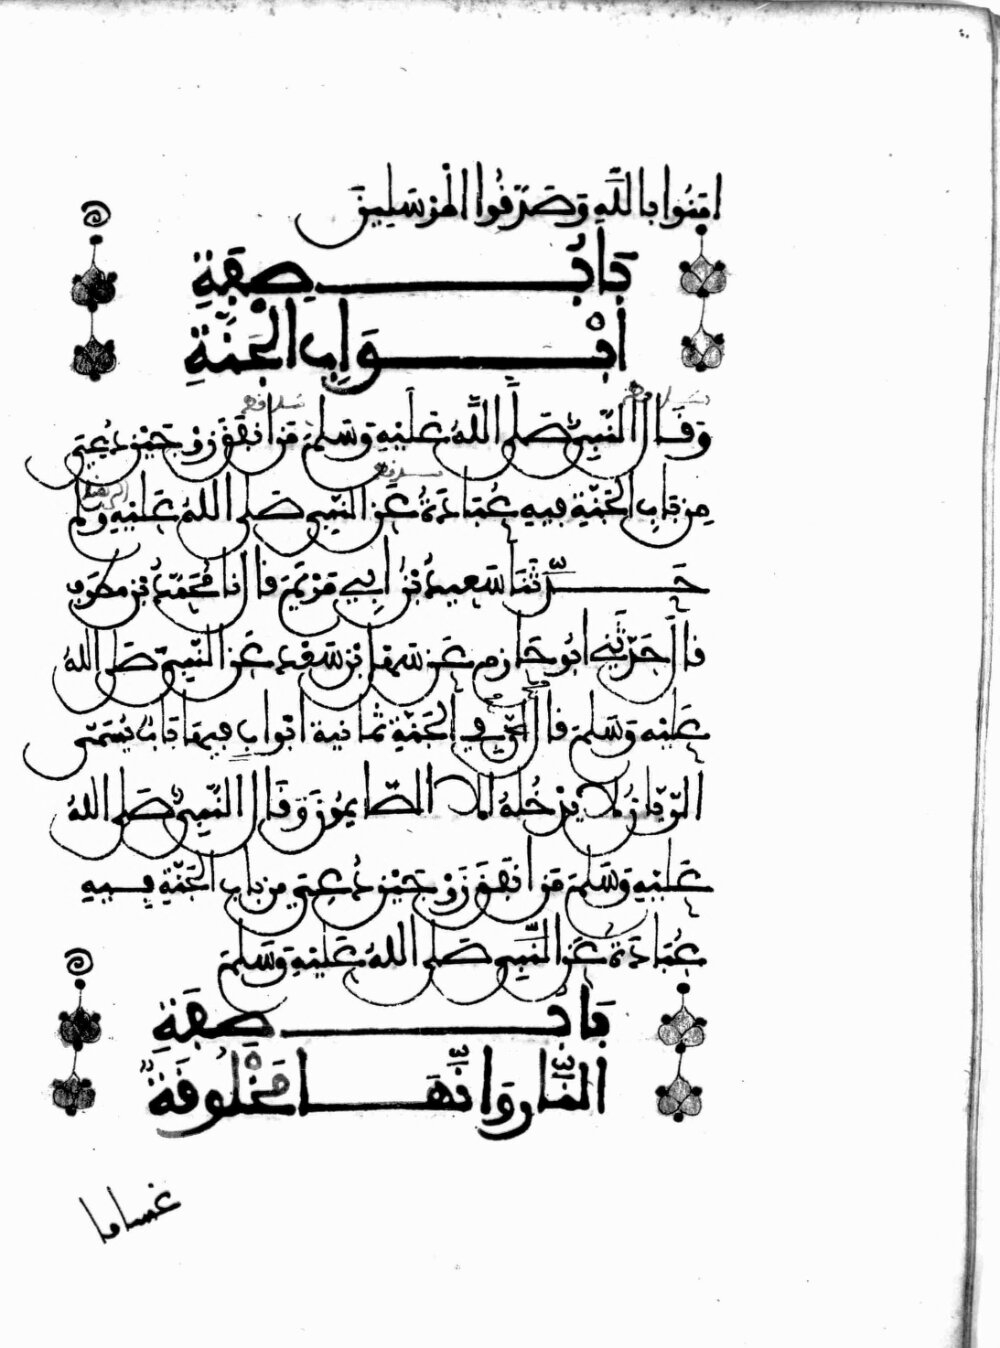 امَنُوا بِاللَّهِ وَصَدَّقُوا الْمُرْسَلِينَ
بَابُ صِفَةِ
أَبْوَابِ الْجَنَّةِ
وَقَالَ النَّبِيُّ صَلَّى اللَّهُ عَلَيْهِ وَسَلَّمَ مَنْ انْفَقَ زَوْجَيْنِ دُعِيَ
مِنْ بَابِ الْجَنَّةِ فِيهِ عُبَادَةُ عَنِ النَّبِيِّ صَلَّى اللَّهُ عَلَيْهِ وَسَلَّمَ
حَدَّثَنَا سَعِيدُ بْنُ أَبِي مَرْيَمَ قَالَ نَا مُحَمَّدُ بْنُ مُطَرِّفٍ
قَالَ حَدَّثَنِي ابُو حَازِمٍ عَنْ سَهْلِ بْنِ سَعْدٍ عَنِ النَّبِيِّ صَلَّى اللَّهُ
عَلَيْهِ وَسَلَّمَ قَالَ فِي الْجَنَّةِ ثَمَانِيَةُ ابْوَابٍ فِيهَا بَابٌ يُسَمَّى
الرَّيَّانَ لَا يَدْخُلُهُ إِلَّا الصَّايِمُونَ وَقَالَ النَّبِيُّ صَلَّى اللَّهُ
عَلَيْهِ وَسَلَّمَ مَنْ انْفَقَ زَوْجَيْنِ دُعِيَ مِنْ بَابِ الْجَنَّةِ فِيهِ
عُبَادَةُ عَنِ النَّبِيِّ صَلَّى اللَّهُ عَلَيْهِ وَسَلَّمَ
بَابُ صِفَةِ
النَّارِ وَانَّهَا مَخْلُوقَةٌ
غساقا